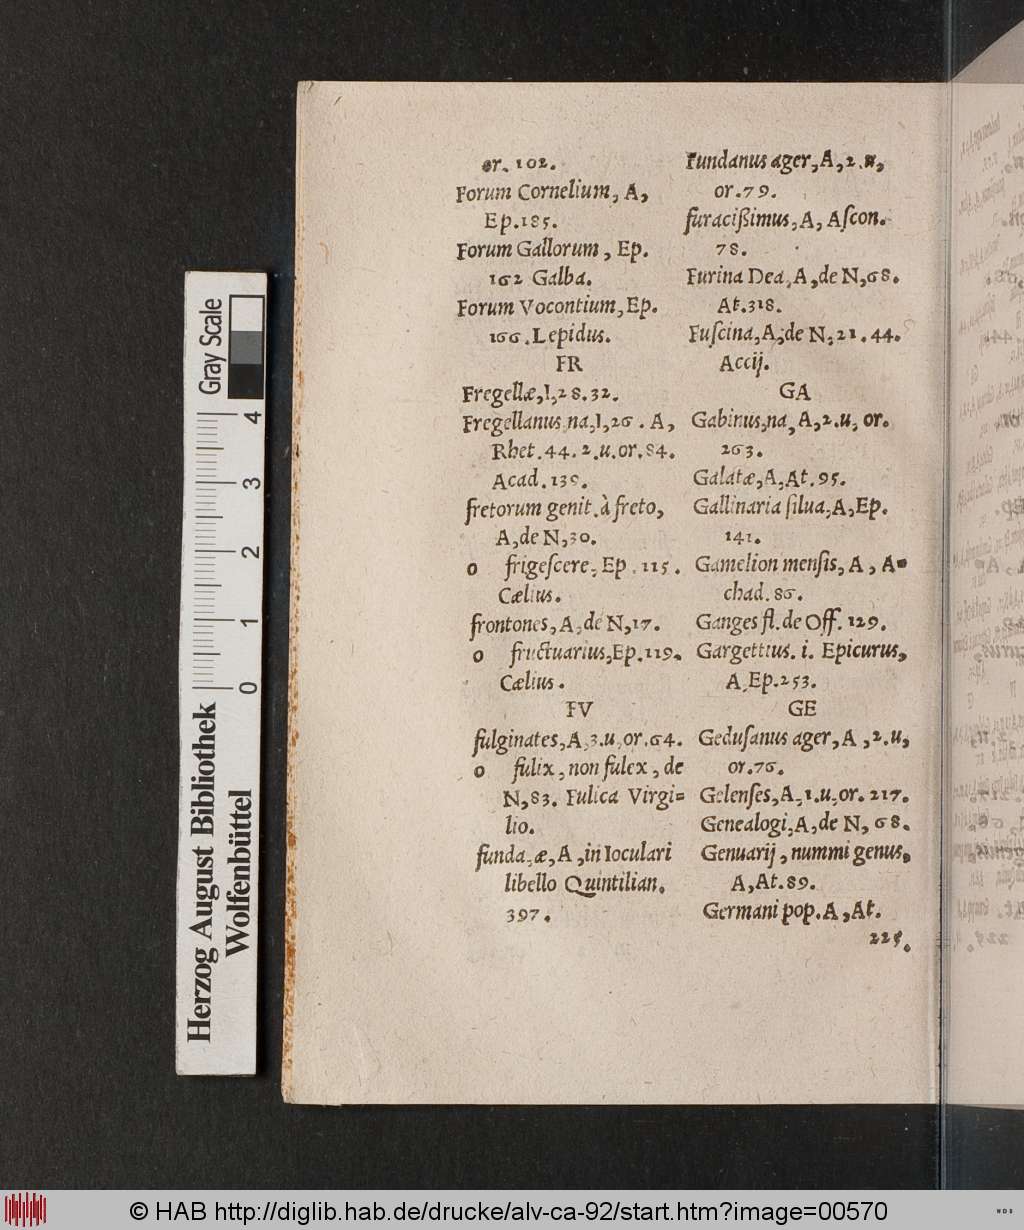 or. 102.
Forum Cornelium, A,
Ep. 185.
Forum Gallorum, Ep.
162 Galba.
Forum Vocontium, Ep.
166. Lepidus.
FR
Fregellæ, 1, 28. 32.
Fregellanus, na, 1, 26. A,
Rhet. 44. 2. u. or. 84.
Acad. 139.
fretorum genit. à freto,
A, de N, 30.
o frigeſcere, Ep. 115.
Cælius.
frontones, A, de N, 17.
o fructuarius, Ep. 119.
Cælius.
FV
fulginates, A, 3. u, or. 64.
o fulix, non fulex, de
N, 83. Fulica Virgi=
lio.
funda, æ, A, in Ioculari
libello Quintilian.
397.
Fundanus ager, A, 2. u,
or. 79.
furacißimus, A, Aſcon.
78.
Furina Dea, A, de N, 68.
At. 318.
Fuſcina, A, de N, 21. 44.
Accij.
GA
Gabinus, na, A, 2. u, or.
263.
Galatæ, A, At. 95.
Gallinaria ſilua, A, Ep.
141.
Gamelion menſis, A, A=
chad. 86.
Ganges fl. de Off. 129.
Gargettius. i. Epicurus,
A, Ep. 253.
GE
Geduſanus ager, A, 2. u,
or. 76.
Gelenſes, A, 1. u, or. 217.
Genealogi, A, de N, 68.
Genuarij, nummi genus,
A, At. 89.
Germani pop. A, At.
225.
Herzog August Bibliothek
Wolfenbüttel
0 1 2 3 4
Gray Scale
© HAB http://diglib.hab.de/drucke/alv-ca-92/start.htm?image=00570
WDB